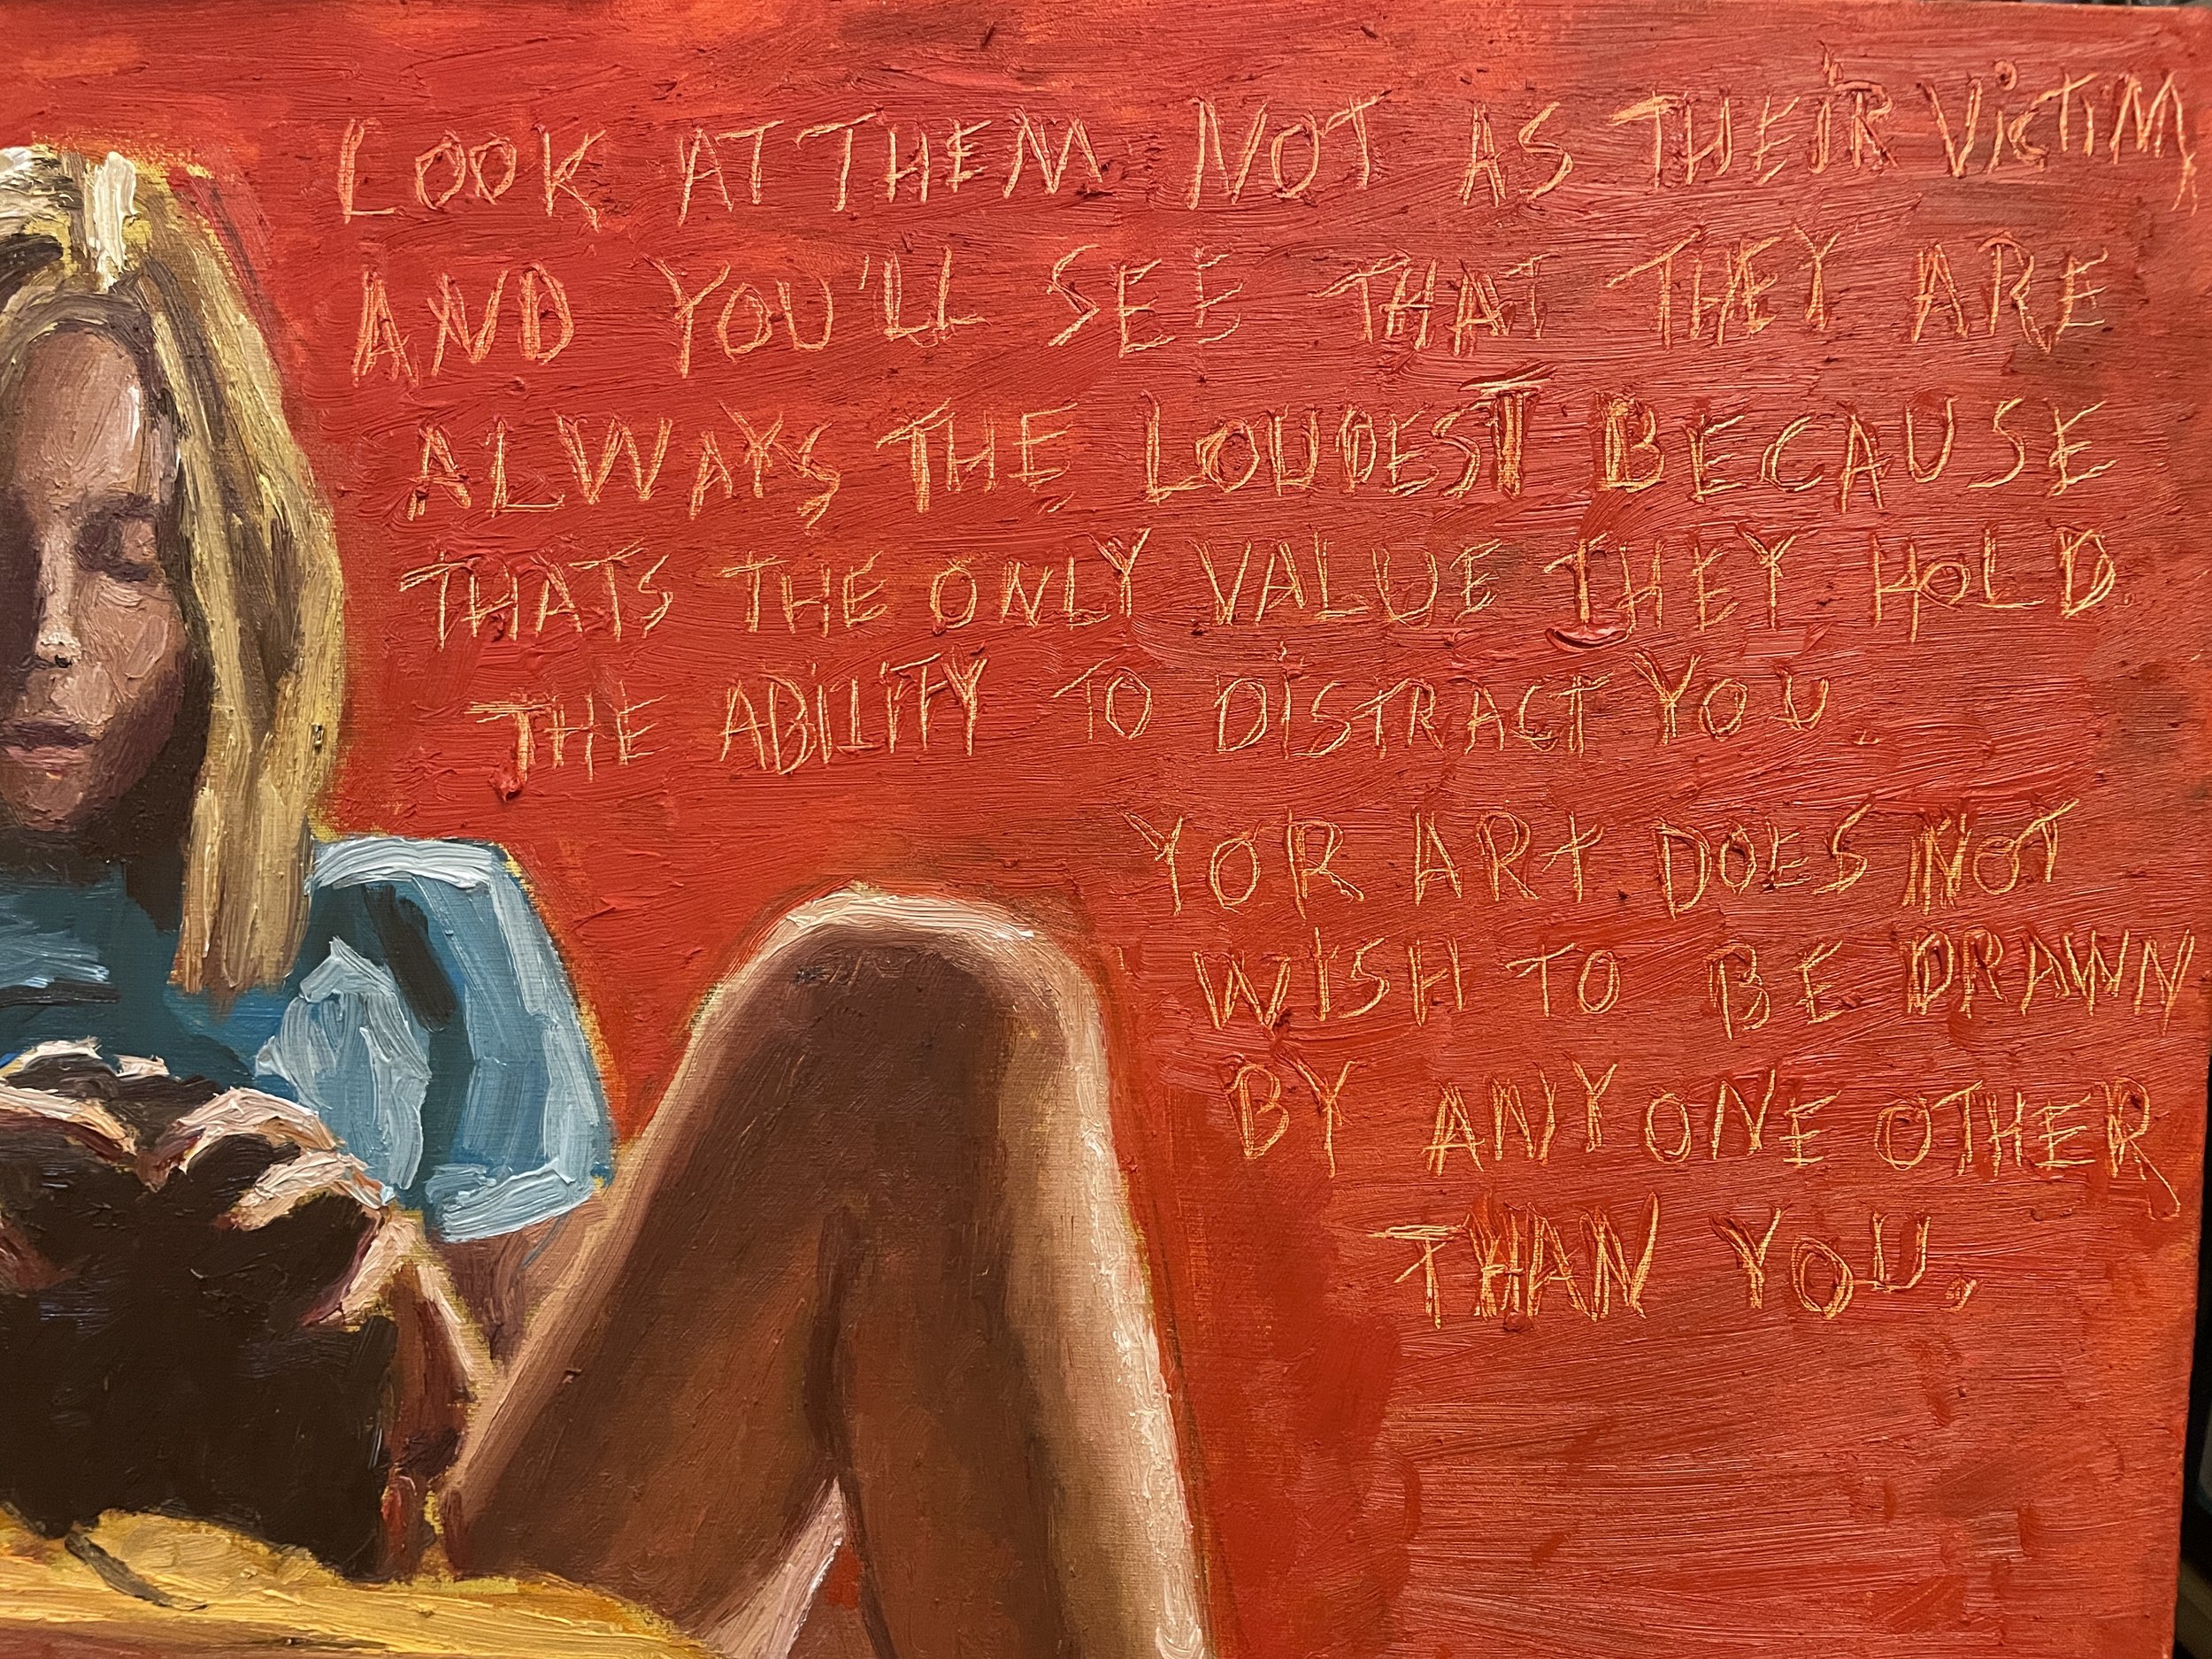 LOOK AT THEM NOT AS THEIR VICTIM,
AND YOU'LL SEE THAT THEY ARE
ALWAYS THE LOUDEST BECAUSE
THATS THE ONLY VALUE THEY HOLD.
THE ABILITY TO DISTRACT YOU.
YOR ART DOES NOT
WISH TO BE DRAWN
BY ANYONE OTHER
THAN YOU.